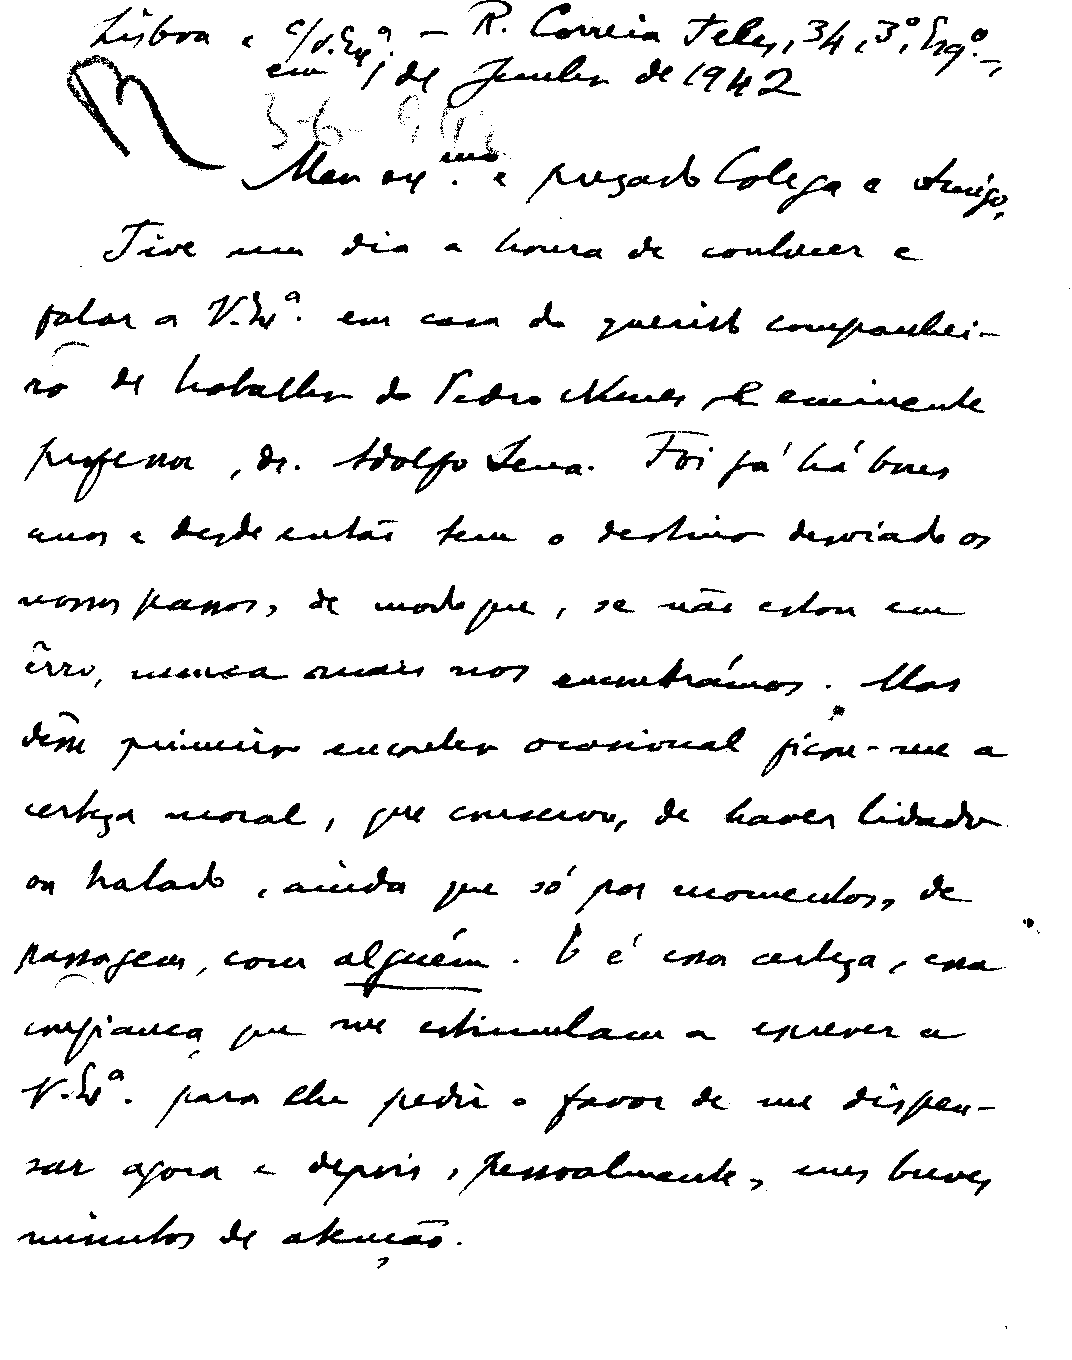 Lisboa e c/ V. Exª. – R. Correia Teles, 34, 3º, Esqº.,
em 1 de Junho de 1942
3-6-942
Meu exmo. e prezado Colega e Amigo,
Tive um dia a honra de conhecer e
falar a V. Exª. em casa do querido companhei-
ro de trabalho do Pedro Nunes, e eminente
professor, dr. Adolfo Sena. Foi já há bons
anos e desde então tem o destino desviado os
nossos passos, de modo que, se não estou em
êrro, nunca mais nos encontrámos. Mas
dêsse primeiro encontro ocasional ficou-me a
certeza moral, que conservo, de haver lidado
ou tratado, ainda que só por momentos, de
passagem, com alguém. E é essa certeza, essa
confiança que me estimulam a escrever a
V. Exª. para lhe pedir o favor de me dispen-
sar agora e depois, pessoalmente, uns breves
minutos de atenção.